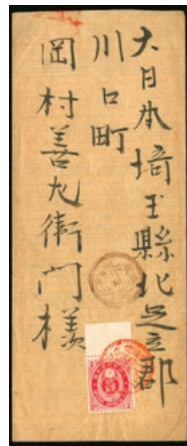 大日本埼玉縣北足立郡
川口町
岡村善九衛門様